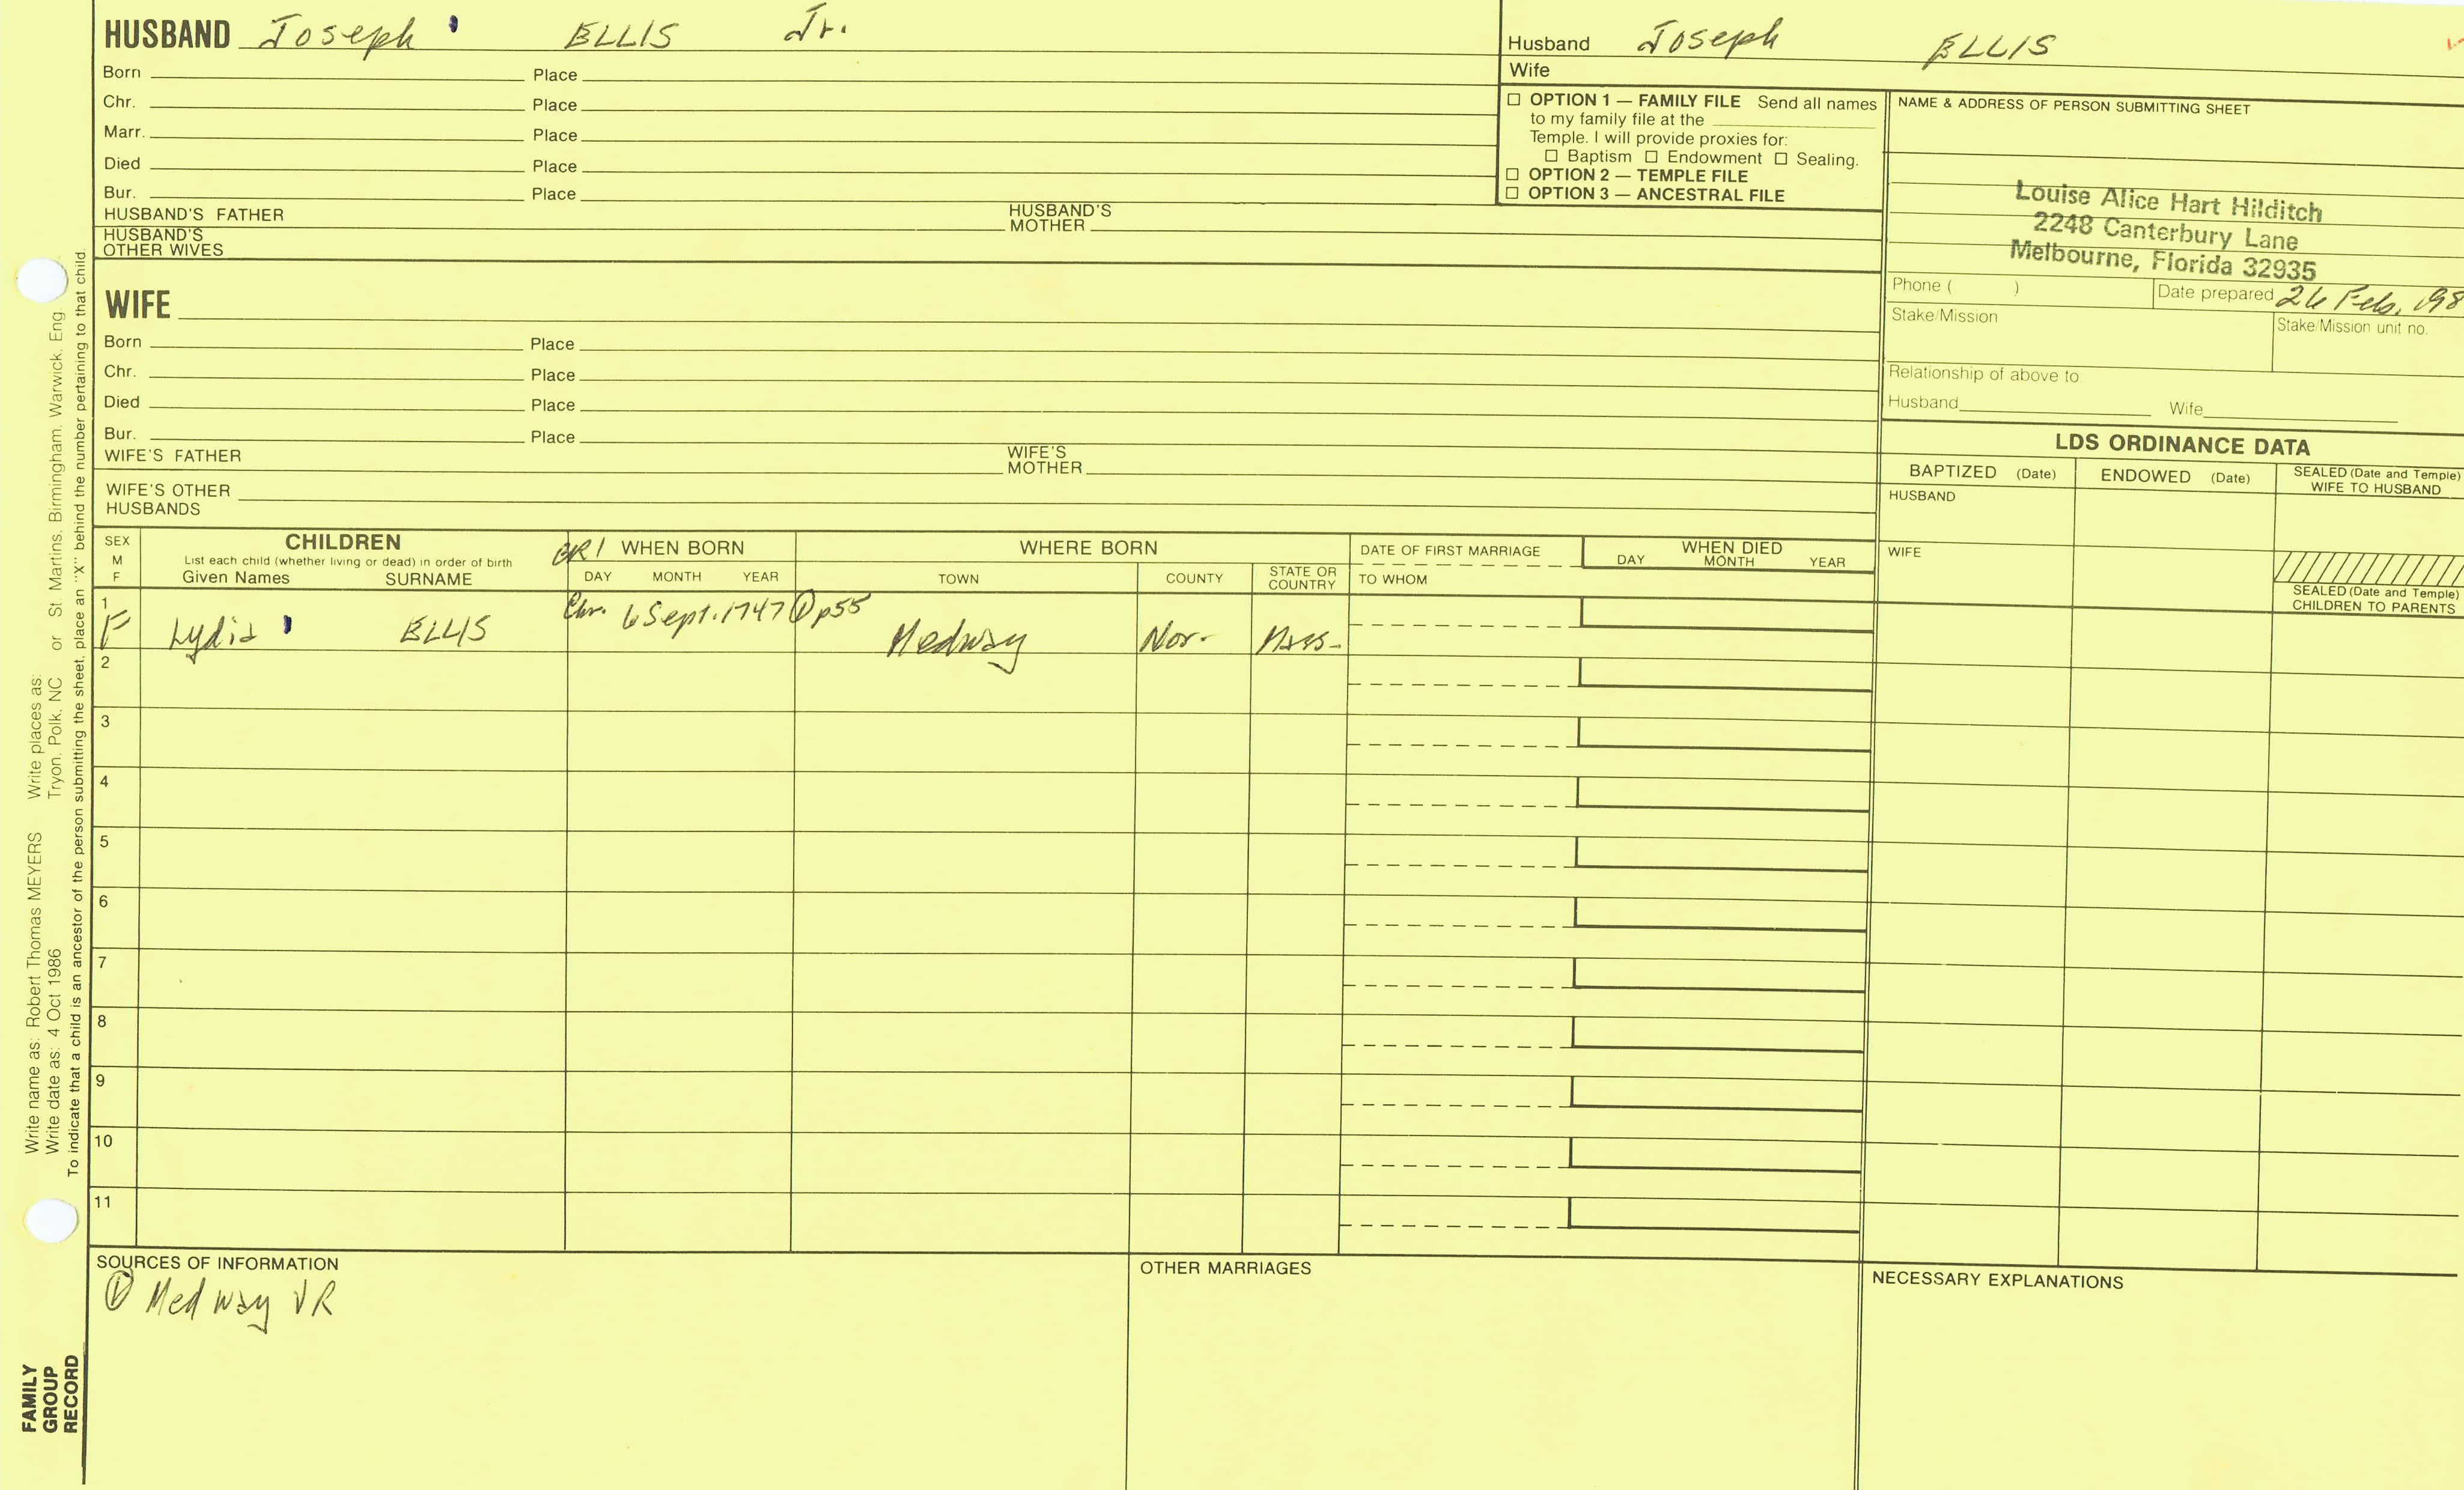 HUSBAND Joseph ELLIS Jr.
Born Place
Chr. Place
Marr. Place
Died Place
Bur. Place
HUSBAND'S FATHER HUSBAND'S MOTHER
HUSBAND'S OTHER WIVES
Husband Joseph ELLIS
Wife
☐ OPTION 1 — FAMILY FILE Send all names
to my family file at the
Temple. I will provide proxies for:
☐ Baptism ☐ Endowment ☐ Sealing.
☐ OPTION 2 — TEMPLE FILE
☐ OPTION 3 — ANCESTRAL FILE
NAME & ADDRESS OF PERSON SUBMITTING SHEET
Louise Alice Hart Hilditch
2248 Canterbury Lane
Melbourne, Florida 32935
Phone ( ) Date prepared 26 Feb. 198
Stake/Mission Stake/Mission unit no.
Relationship of above to
Husband Wife
WIFE
Born Place
Chr. Place
Died Place
Bur. Place
WIFE'S FATHER WIFE'S MOTHER
WIFE'S OTHER
HUSBANDS
LDS ORDINANCE DATA
BAPTIZED (Date) ENDOWED (Date) SEALED (Date and Temple)
WIFE TO HUSBAND
HUSBAND
WIFE
SEALED (Date and Temple)
CHILDREN TO PARENTS
SEX
M
F
CHILDREN
List each child (whether living or dead) in order of birth
Given Names SURNAME
WHEN BORN
DAY MONTH YEAR
WHERE BORN
TOWN COUNTY STATE OR COUNTRY
DATE OF FIRST MARRIAGE
TO WHOM
WHEN DIED
DAY MONTH YEAR
1
F Lydia ELLIS Chr. 6 Sept. 1747 ① p55 Medway Nor. Mass.
2
3
4
5
6
7
8
9
10
11
SOURCES OF INFORMATION
① Medway VR
OTHER MARRIAGES
NECESSARY EXPLANATIONS
Write name as: Robert Thomas MEYERS Write places as:
Write date as: 4 Oct 1986 Tryon, Polk, NC or St. Martins, Birmingham, Warwick, Eng
To indicate that a child is an ancestor of the person submitting the sheet, place an "X" behind the number pertaining to that child.
FAMILY
GROUP
RECORD